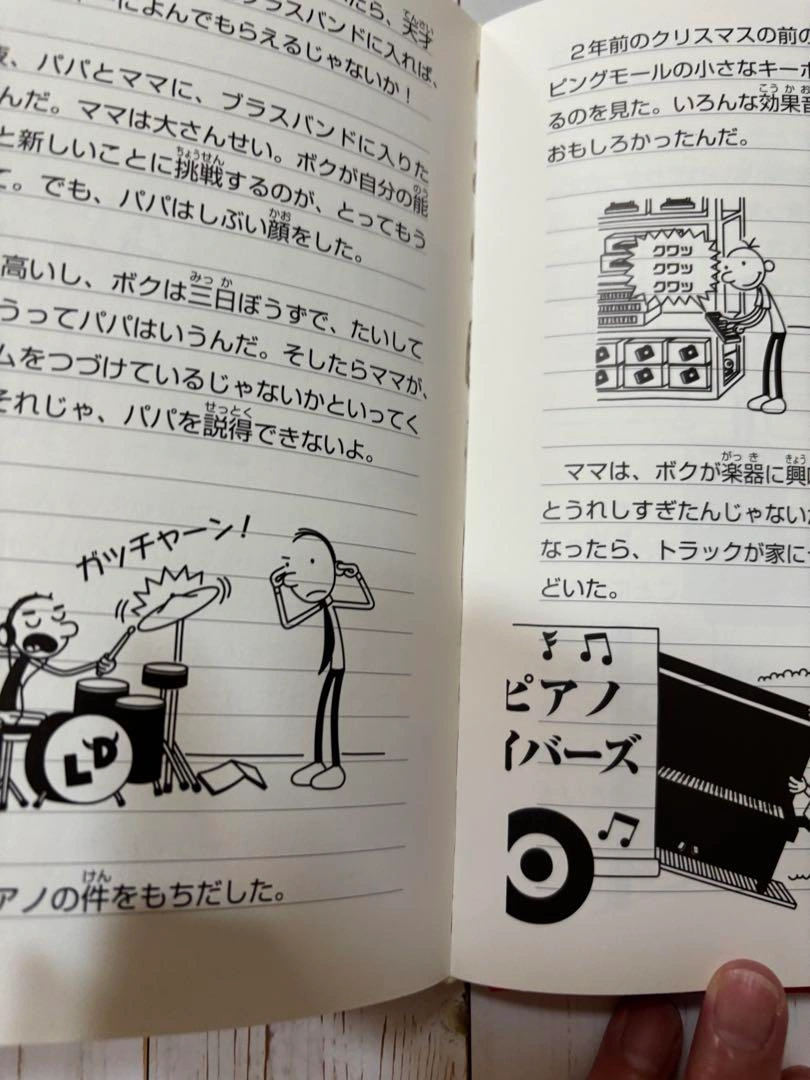 たら、天才
によんでもらえるじゃないか！
ブラスバンドに入れば、
、パパとママに、ブラスバンドに入りた
んだ。ママは大さんせい。ボクが自分の能
と新しいことに挑戦するのが、とってもう
て。でも、パパはしぶい顔をした。
高いし、ボクは三日ぼうずで、たいして
うってパパはいうんだ。そしたらママが、
ムをつづけているじゃないかといってく
それじゃ、パパを説得できないよ。
ガッチャーン！
LD
アノの件をもちだした。
2年前のクリスマスの前の
ピングモールの小さなキーボ
るのを見た。いろんな効果音
おもしろかったんだ。
クワッ
クワッ
クワッ
ママは、ボクが楽器に興
とうれしすぎたんじゃない
なったら、トラックが家に
どいた。
ピアノ
イバーズ